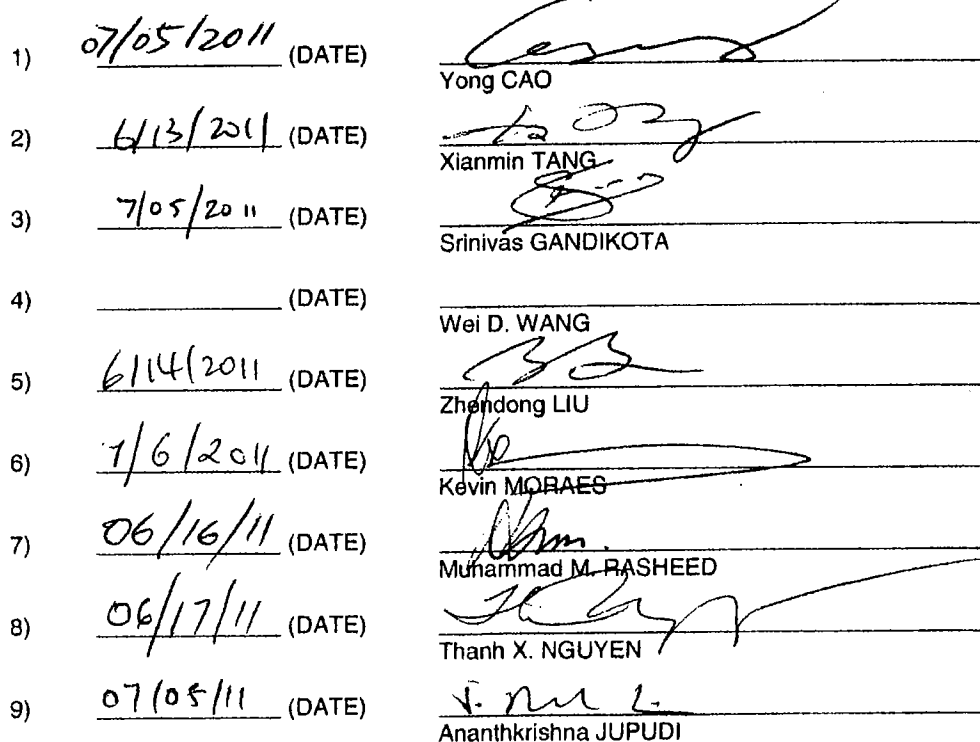 1) 07/05/2011 (DATE)
Yong CAO
2) 6/13/2011 (DATE)
Xianmin TANG
3) 7/05/2011 (DATE)
Srinivas GANDIKOTA
4) (DATE)
Wei D. WANG
5) 6/14/2011 (DATE)
Zhendong LIU
6) 7/6/2011 (DATE)
Kevin MORAES
7) 06/16/11 (DATE)
Muhammad M. RASHEED
8) 06/17/11 (DATE)
Thanh X. NGUYEN
9) 07/05/11 (DATE)
Ananthkrishna JUPUDI